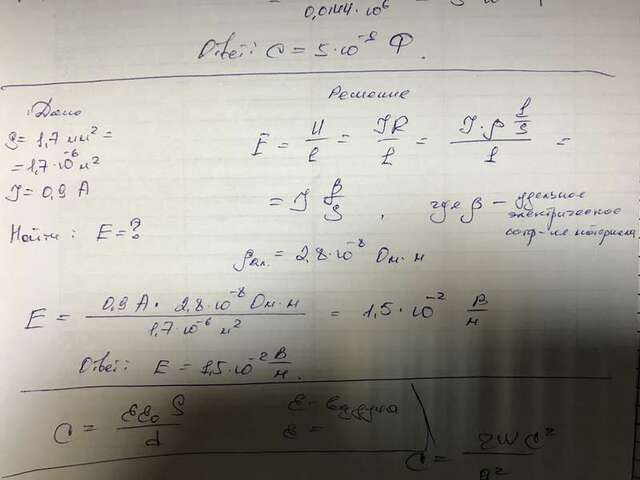 0,0144 · 10⁶
Ответ: C = 5 · 10⁻⁹ Ф.
Дано
S = 1,7 мм² =
= 1,7 · 10⁻⁶ м²
I = 0,9 А
Найти: E = ?
Решение
E = U/l = IR/l = I · ρ l/S / l =
= I ρ/S, где ρ – удельное
электрическое
сопр-ие материала
ρ ал. = 2,8 · 10⁻⁸ Ом · м
E = 0,9 А · 2,8 · 10⁻⁸ Ом · м / 1,7 · 10⁻⁶ м² = 1,5 · 10⁻² В/м
Ответ: E = 1,5 · 10⁻² В/м.
C = εε₀ S / d
ε – воздуха
ε =
C = 2WC² / q²